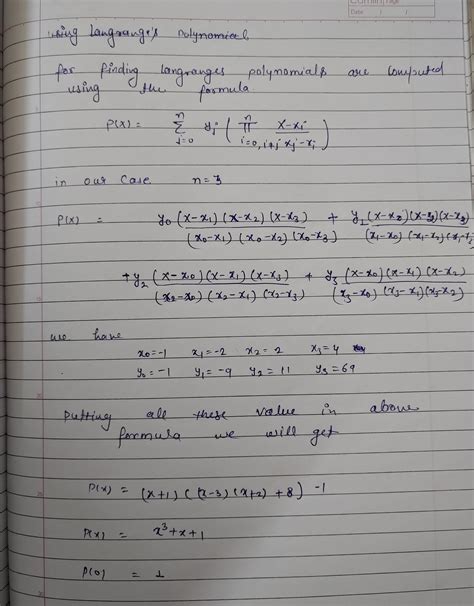 Using Langrange's Polynomial
for finding langranges polynomials are computed
using the formula
P(x) = n Σ j=0 yj ( n Π i=0, i≠j x-xi / xj-xi )
in our case n=3
P(x) = y0 (x-x1) (x-x2) (x-x3) / (x0-x1) (x0-x2) (x0-x3) + y1 (x-x0)(x-x2)(x-x3) / (x1-x0) (x1-x2)(x1-x3)
+ y2 (x-x0) (x-x1) (x-x3) / (x2-x0) (x2-x1) (x2-x3) + y3 (x-x0) (x-x1) (x-x2) / (x3-x0) (x3-x1)(x3-x2)
we have
x0=-1 x1=-2 x2=2 x3=4
y0=-1 y1=-9 y2=11 y3=69
putting all these value in above
formula we will get
P(x) = (x+1) ((x-3)(x+2)+8) -1
P(x) = x³+x+1
P(0) = 1